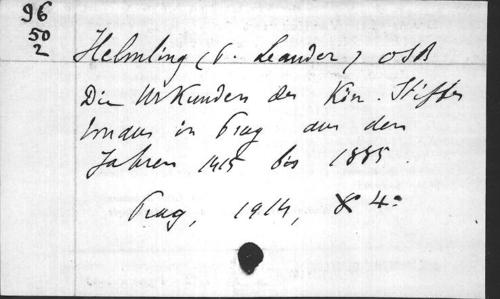 96
50
2
Helmling (P. Leander) OSB
Die Urkunden des Kön. Stiftes
Emaus in Prag aus den
Jahren 1415 bis 1885.
Prag, 1914, 8° 4°